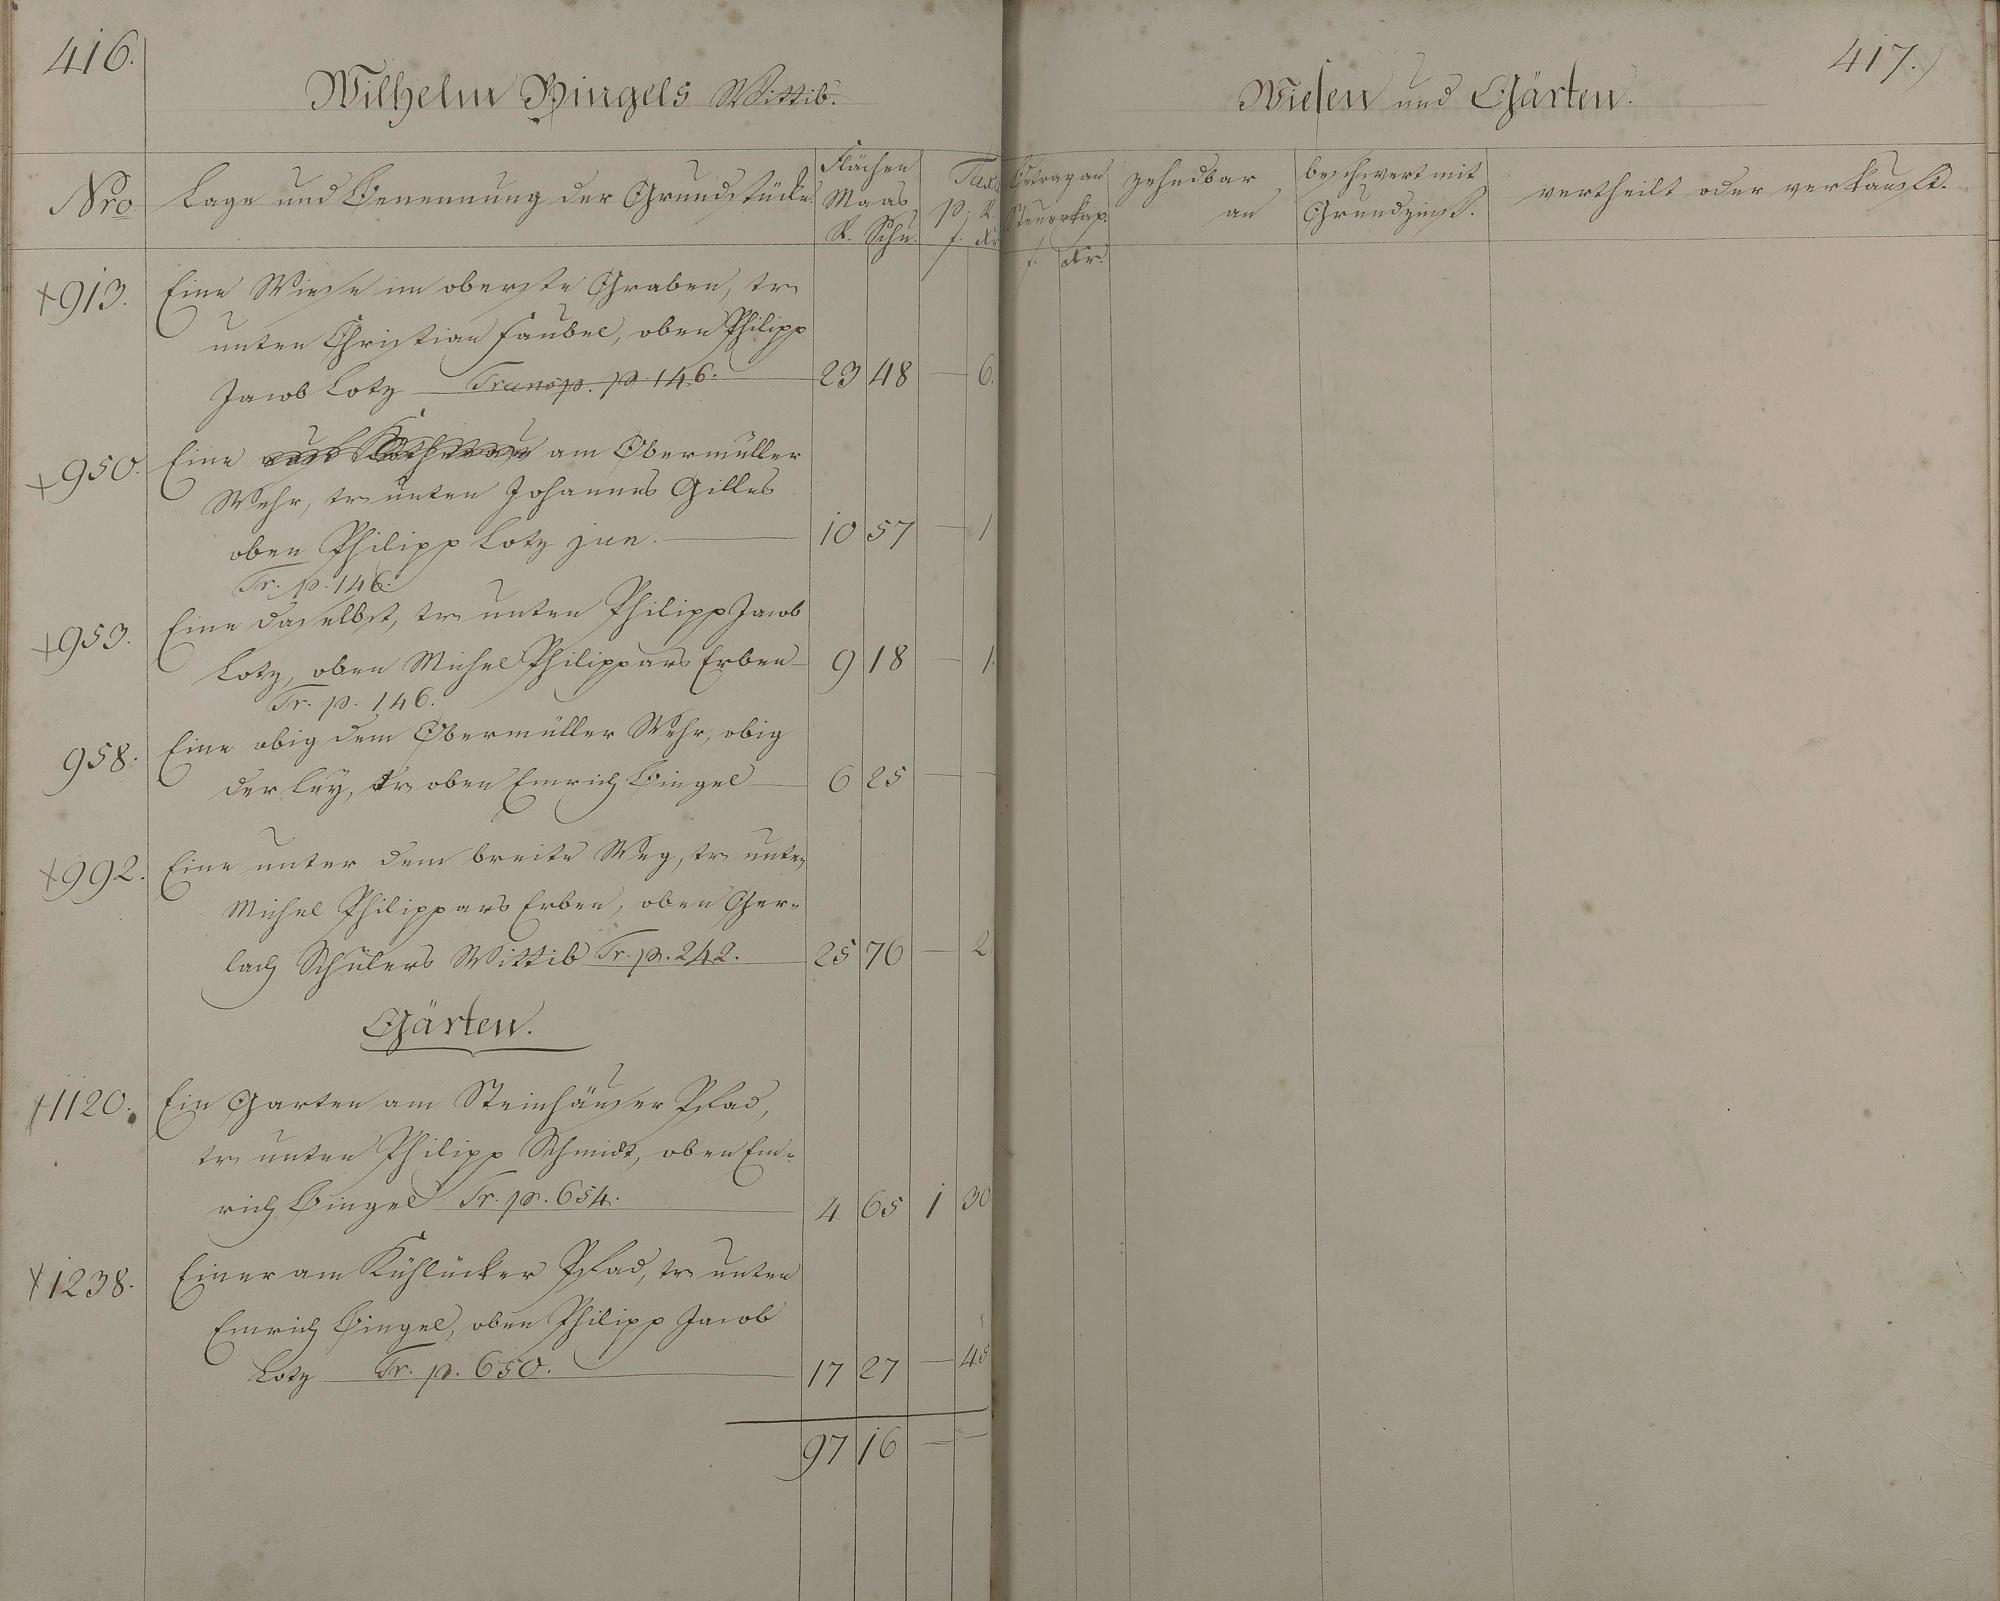 416.
Wilhelm Bingels Wittib.
Nro Lage und Benennung der Grundstücke. Flächen Maas R. Schu. Tax p. R. f. Kr
+913. Eine Wiese im oberste Graben, tr
unten Christian Faubel, oben Philipp
Jacob Lotz Transp. p 146. 23 48 — 6.
+950. Eine am Obermüller
Wehr, tr unten Johannes Gilles
oben Philipp Lotz jun. 10 57 — 1
Tr. p. 146.
+953. Eine daselbst, tr unten Philipp Jacob
Lotz, oben Michel Philippars Erben 9 18 — 1.
Tr. p. 146.
958. Eine obig dem Obermüller Wehr, obig
der Ley, tr oben Emrich Bingel 6 25 — —
+992. Eine unter dem breite Weg, tr unten
Michel Philippars Erben, oben Ger=
lach Schülers Wittib Tr. p. 242. 25 76 — 2
Gärten.
+1120. Ein Garten am Steinhäuser Pfad,
tr unten Philipp Schmidt, oben Em=
rich Bingel Tr. p. 654. 4 65 1 30
+1238. Einer am Kühlücker Pfad, tr unten
Emrich Bingel, oben Philipp Jacob
Lotz Tr. p. 650. 17 27 — 45
97 16 — —
417.
Wiesen und Gärten.
Betrag an Steuerkap. f. Kr. zehndbar an beschwert mit Grundzinß. vertheilt oder verkauft.